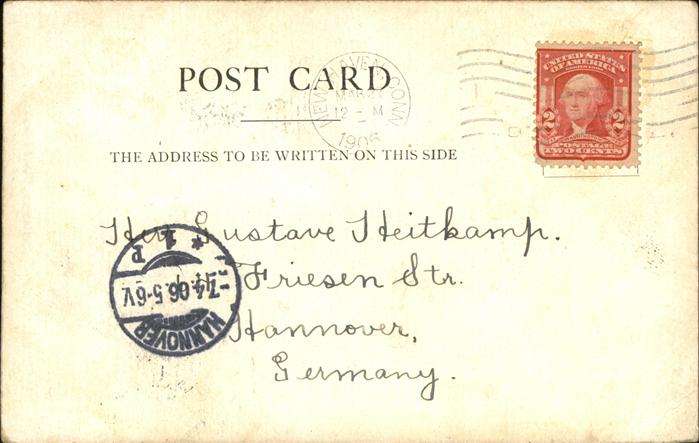 POST CARD
NEW HAVEN, CONN
MAR
12 - M
1906
UNITED STATES
OF AMERICA
2 2
POSTAGE
TWO CENTS
THE ADDRESS TO BE WRITTEN ON THIS SIDE
Herr Gustave Heitkamp.
Friesen Str.
Hannover,
Germany.
HANNOVER
-7.4.06.5-6V.
* 1 P